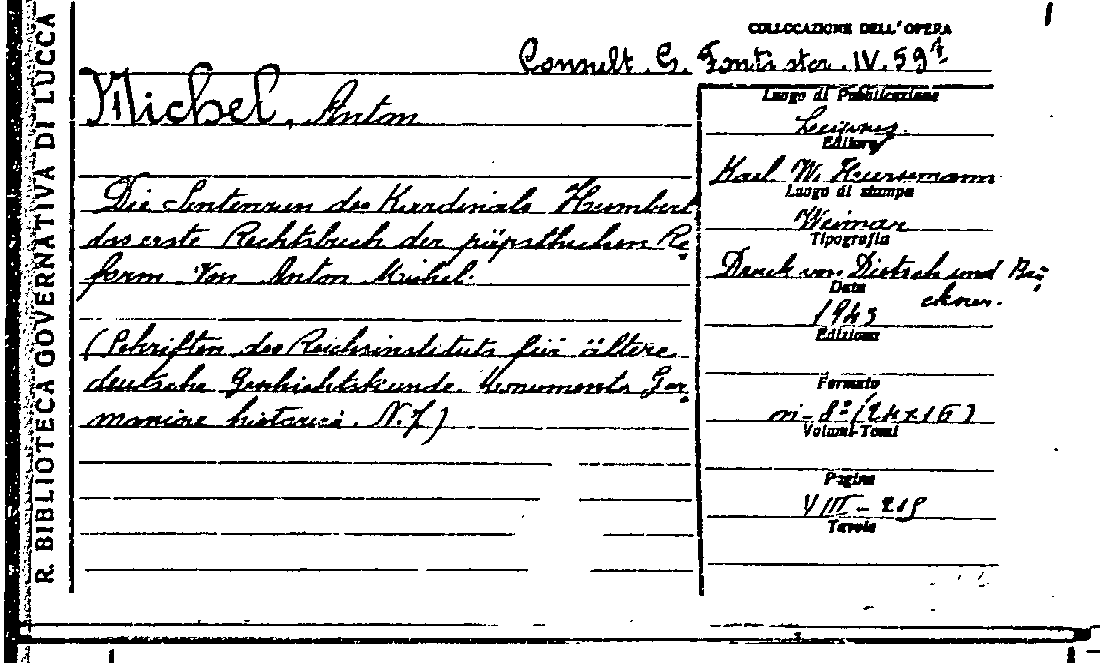 R. BIBLIOTECA GOVERNATIVA DI LUCCA
COLLOCAZIONE DELL'OPERA
Consult. G. Fonti stor. IV. 59
Michel, Anton
Die Sentenzen des Kardinals Humbert,
das erste Rechtsbuch der päpstlichen Re
form von Anton Michel.
(Schriften des Reichsinstituts für ältere
deutsche Geschichtskunde. Monumenta Ger
maniae historica. N. 7)
Luogo di Pubblicazione
Editore
Karl W. Hiersemann
Luogo di stampa
Weimar
Tipografia
Druck von Dietsch und Brü
ckner.
Data
1943
Edizione
Formato
in-8° (24x16)
Volumi-Tomi
Pagine
VIII - 219
Tavole